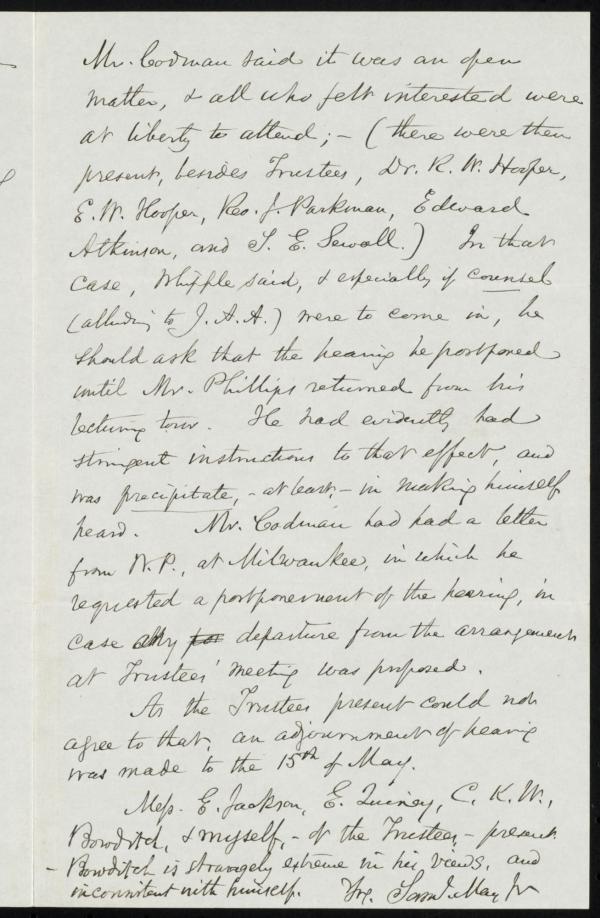 Mr. Codman said it was an open
matter, & all who felt interested were
at liberty to attend; – (there were then
present, besides Trustees, Dr. R. W. Hooper,
E. W. Hooper, Rev. J. Parkman, Edward
Atkinson, and S. E. Sewall.) In that
case, Whipple said, & especially if counsel
(alluding to J. A. A.) were to come in, he
should ask that the hearing be postponed
until Mr. Phillips returned from his
lecturing tour. He had evidently had
stringent instructions to that effect, and
was precipitate, – at least, – in making himself
heard. Mr. Codman had had a letter
from W. P., at Milwaukee, in which he
requested a postponement of the hearing, in
case any for departure from the arrangement
at Trustees' meeting was proposed.
As the Trustees present could not
agree to that, an adjournment of hearing
was made to the 15th of May.
Mess. E. Jackson, E. Quincy, C. K. W.,
Bowditch, & myself, – of the Trustees, – present.
– Bowditch is strangely extreme in his views, and
inconsistent with himself. Yrs. Saml. May Jr